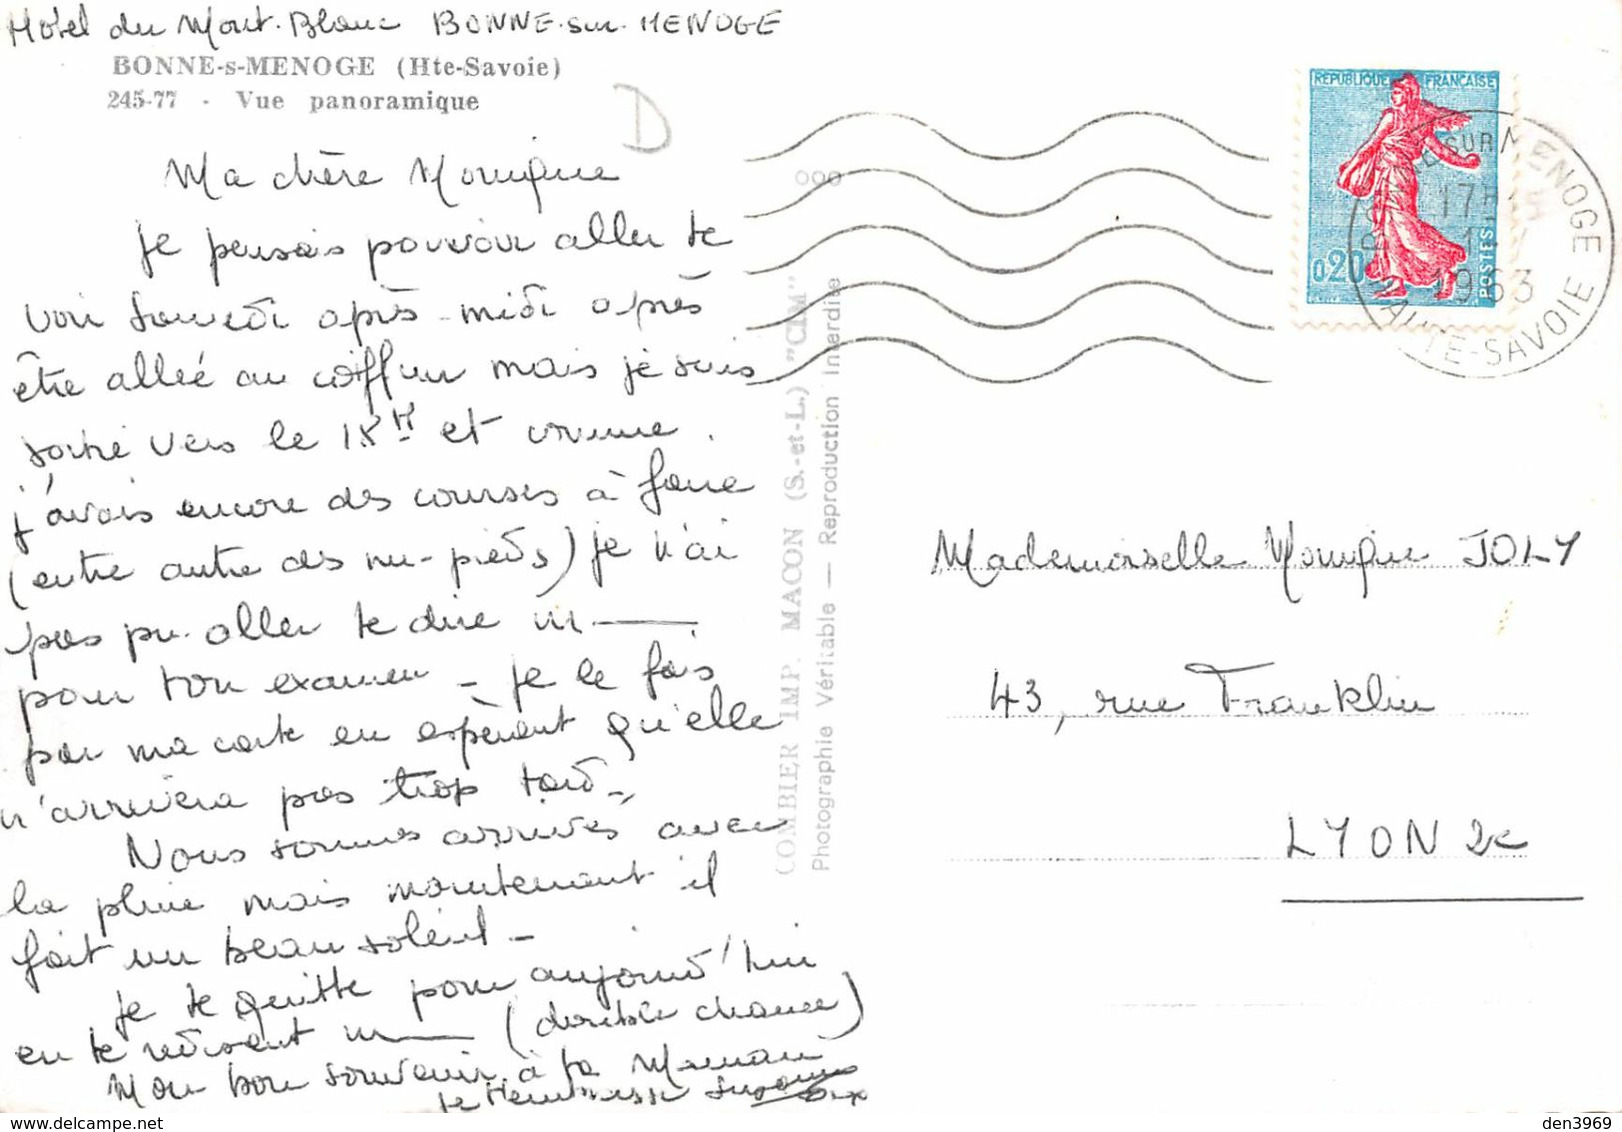 Hôtel du Mont-Blanc BONNE-sur-MENOGE
BONNE-s-MENOGE (Hte-Savoie)
245-77 - Vue panoramique
D
Ma chère Monique
je pensais pouvoir aller te
voir samedi après-midi après
être allée au coiffeur mais je suis
sortie vers le 18 H et comme
j'avais encore des courses à faire
(entre autre des nu-pieds) je n'ai
pas pu aller te dire m———
pour ton examen - je le fais
par ma carte en espérant qu'elle
n'arrivera pas trop tard -
Nous sommes arrivés avec
la pluie mais maintenant il
fait un beau soleil -
je te quitte pour aujourd'hui
en te redisant m——— (double chance)
Mon bon souvenir à ta Maman
je t'embrasse
COMBIER IMP. MACON (S.-et-L.) "CIM"
Photographie Véritable — Reproduction Interdite
REPUBLIQUE FRANÇAISE
0,20
POSTES
SUR MENOGE
17H
1963
HAUTE-SAVOIE
Mademoiselle Monique JOLY
43, rue Franklin
LYON 2e
den3969